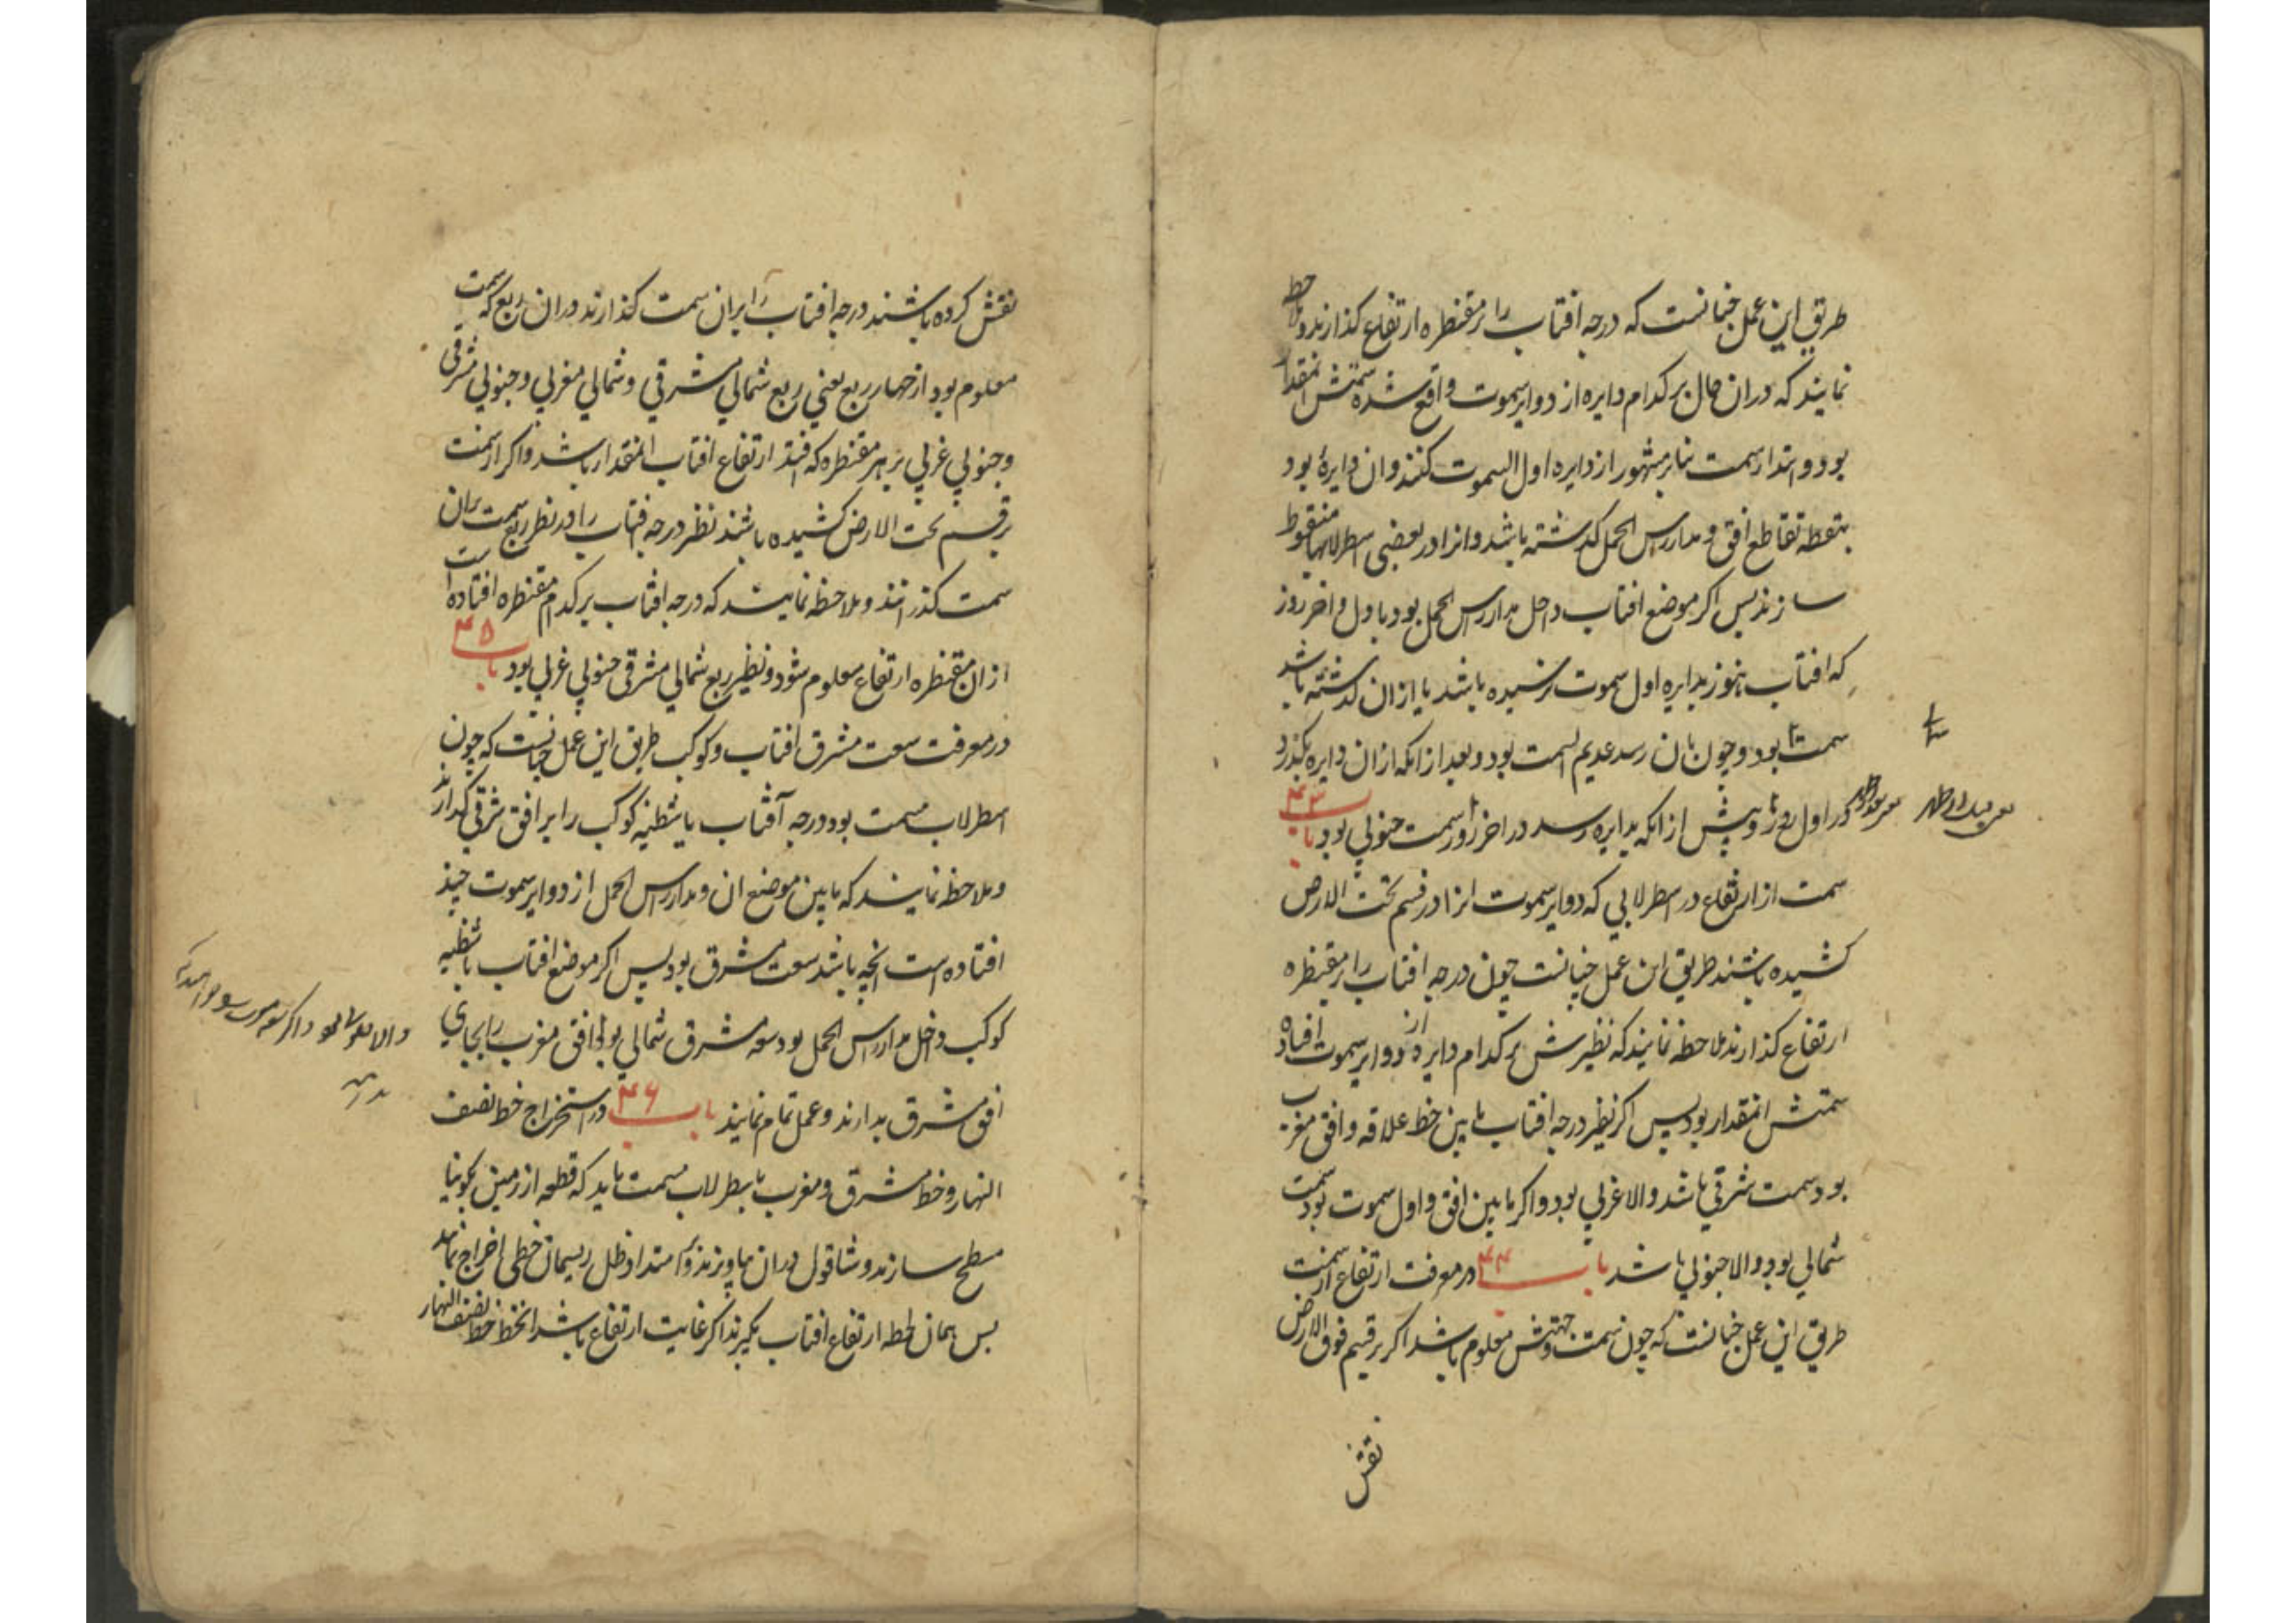 طریق این عمل چنانست که درجه افتاب را بر مقنطره ارتفاع کذارند و ملاحظه
نمایند که دران حال بر کدام دایره از دوایر سموت واقع شده سمتش انمقدار
بود و ابتدا سمت بنابر مشهور از دایره اول السموت کنند وان دایرۀ بود
بنقطه تقاطع افق و مدار راس الحمل کذشته باشد و انرا در بعضی اسطرلابها منقوط
سازند پس اکر موضع افتاب داخل مدار راس الحمل بود باول و اخر روز
که افتاب هنوز بدایره اول سموت نرسیده باشد یا ازان کذشته باشد
سمت بود و چون بان رسد عدیم السمت بود و بعد از انکه ازان دایره بکذرد
در اول روز و پیش از انکه بدایره رسد در اخر روز سمت جنوبی بود باب ۴۳
سمت از ارتفاع در اسطرلابی که دوایر سموت انرا در قسم تحت الارض
کشیده باشند طریق این عمل چنانست چون درجه افتاب را بر مقنطره
ارتفاع کذارند ملاحظه نمایند که نظیرش بر کدام دایره از دوایر سموت افتاد
سمتش انمقدار بود پس اکر نظیر درجه افتاب مابین خط علاقه و افق مغرب
بود سمت شرقی باشد والا غربی بود و اکر مابین افق و اول سموت بود سمت
شمالی بود والا جنوبی باشد باب ۴۴ در معرفت ارتفاع از سمت
طریق این عمل چنانست که چون سمت و جهتش معلوم باشد اکر بر قسم فوق الارض
نقش
نقش کرده باشند درجه افتاب را بران سمت کذارند دران ربع که سمت
معلوم بود از چهار ربع یعنی ربع شمالی مشرقی و شمالی مغربی و جنوبی مشرقی
و جنوبی غربی بر هر مقنطره که افتد ارتفاع افتاب انمقدار باشد و اکر از سمت
بر قسم تحت الارض کشیده باشند نظیر درجه افتاب را در نظیر ربع سمت بران
سمت کذرانند و ملاحظه نمایند که درجه افتاب بر کدام مقنطره افتاده است
ازان مقنطره ارتفاع معلوم شود و نظیر ربع شمالی مشرقی جنوبی غربی بود باب ۴۵
در معرفت سعت مشرق افتاب و کوکب طریق این عمل چنانست که چون
اسطرلاب مسمت بود درجه آفتاب یا شظیه کوکب را بر افق شرقی کذارند
و ملاحظه نمایند که مابین موضع ان و مدار راس الحمل از دوایر سموت چند
افتاده است انچه باشد سعت مشرق بود پس اکر موضع افتاب یا شظیه
کوکب داخل مدار راس الحمل بود سعه مشرق شمالی بود افق مغرب را بجای
افق مشرق بدارند و عمل تمام نمایند باب ۴۶ در استخراج خط نصف
النهار و خط مشرق و مغرب باسطرلاب مسمت باید که قطعه از زمین بکونیا
مسطح سازند و شاقول دران بیاویزند و بر امتداد ظل ریسمان خطی اخراج نمایند
پس همان لحظه ارتفاع افتاب بکیرند اکر غایت ارتفاع باشد انخط خط نصف النهار